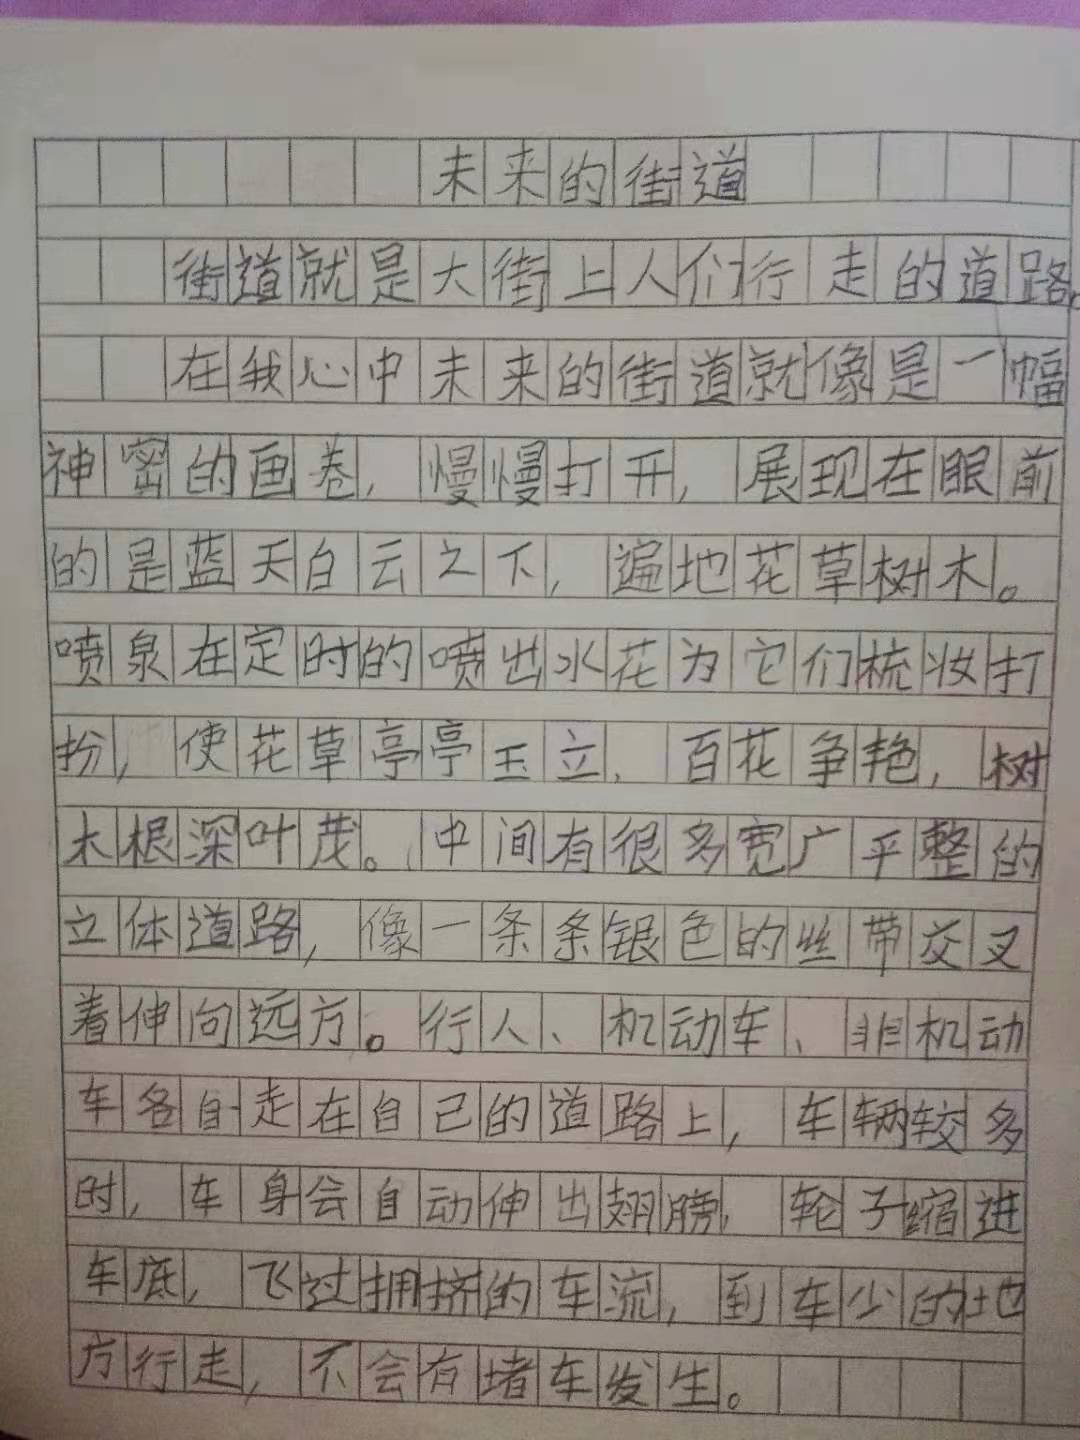 未来的街道
街道就是大街上人们行走的道路。
在我心中未来的街道就像是一幅
神密的画卷，慢慢打开，展现在眼前
的是蓝天白云之下，遍地花草树木。
喷泉在定时的喷出水花为它们梳妆打
扮，使花草亭亭玉立、百花争艳，树
木根深叶茂。中间有很多宽广平整的
立体道路，像一条条银色的丝带交叉
着伸向远方。行人、机动车、非机动
车各自走在自己的道路上，车辆较多
时，车身会自动伸出翅膀，轮子缩进
车底，飞过拥挤的车流，到车少的地
方行走，不会有堵车发生。